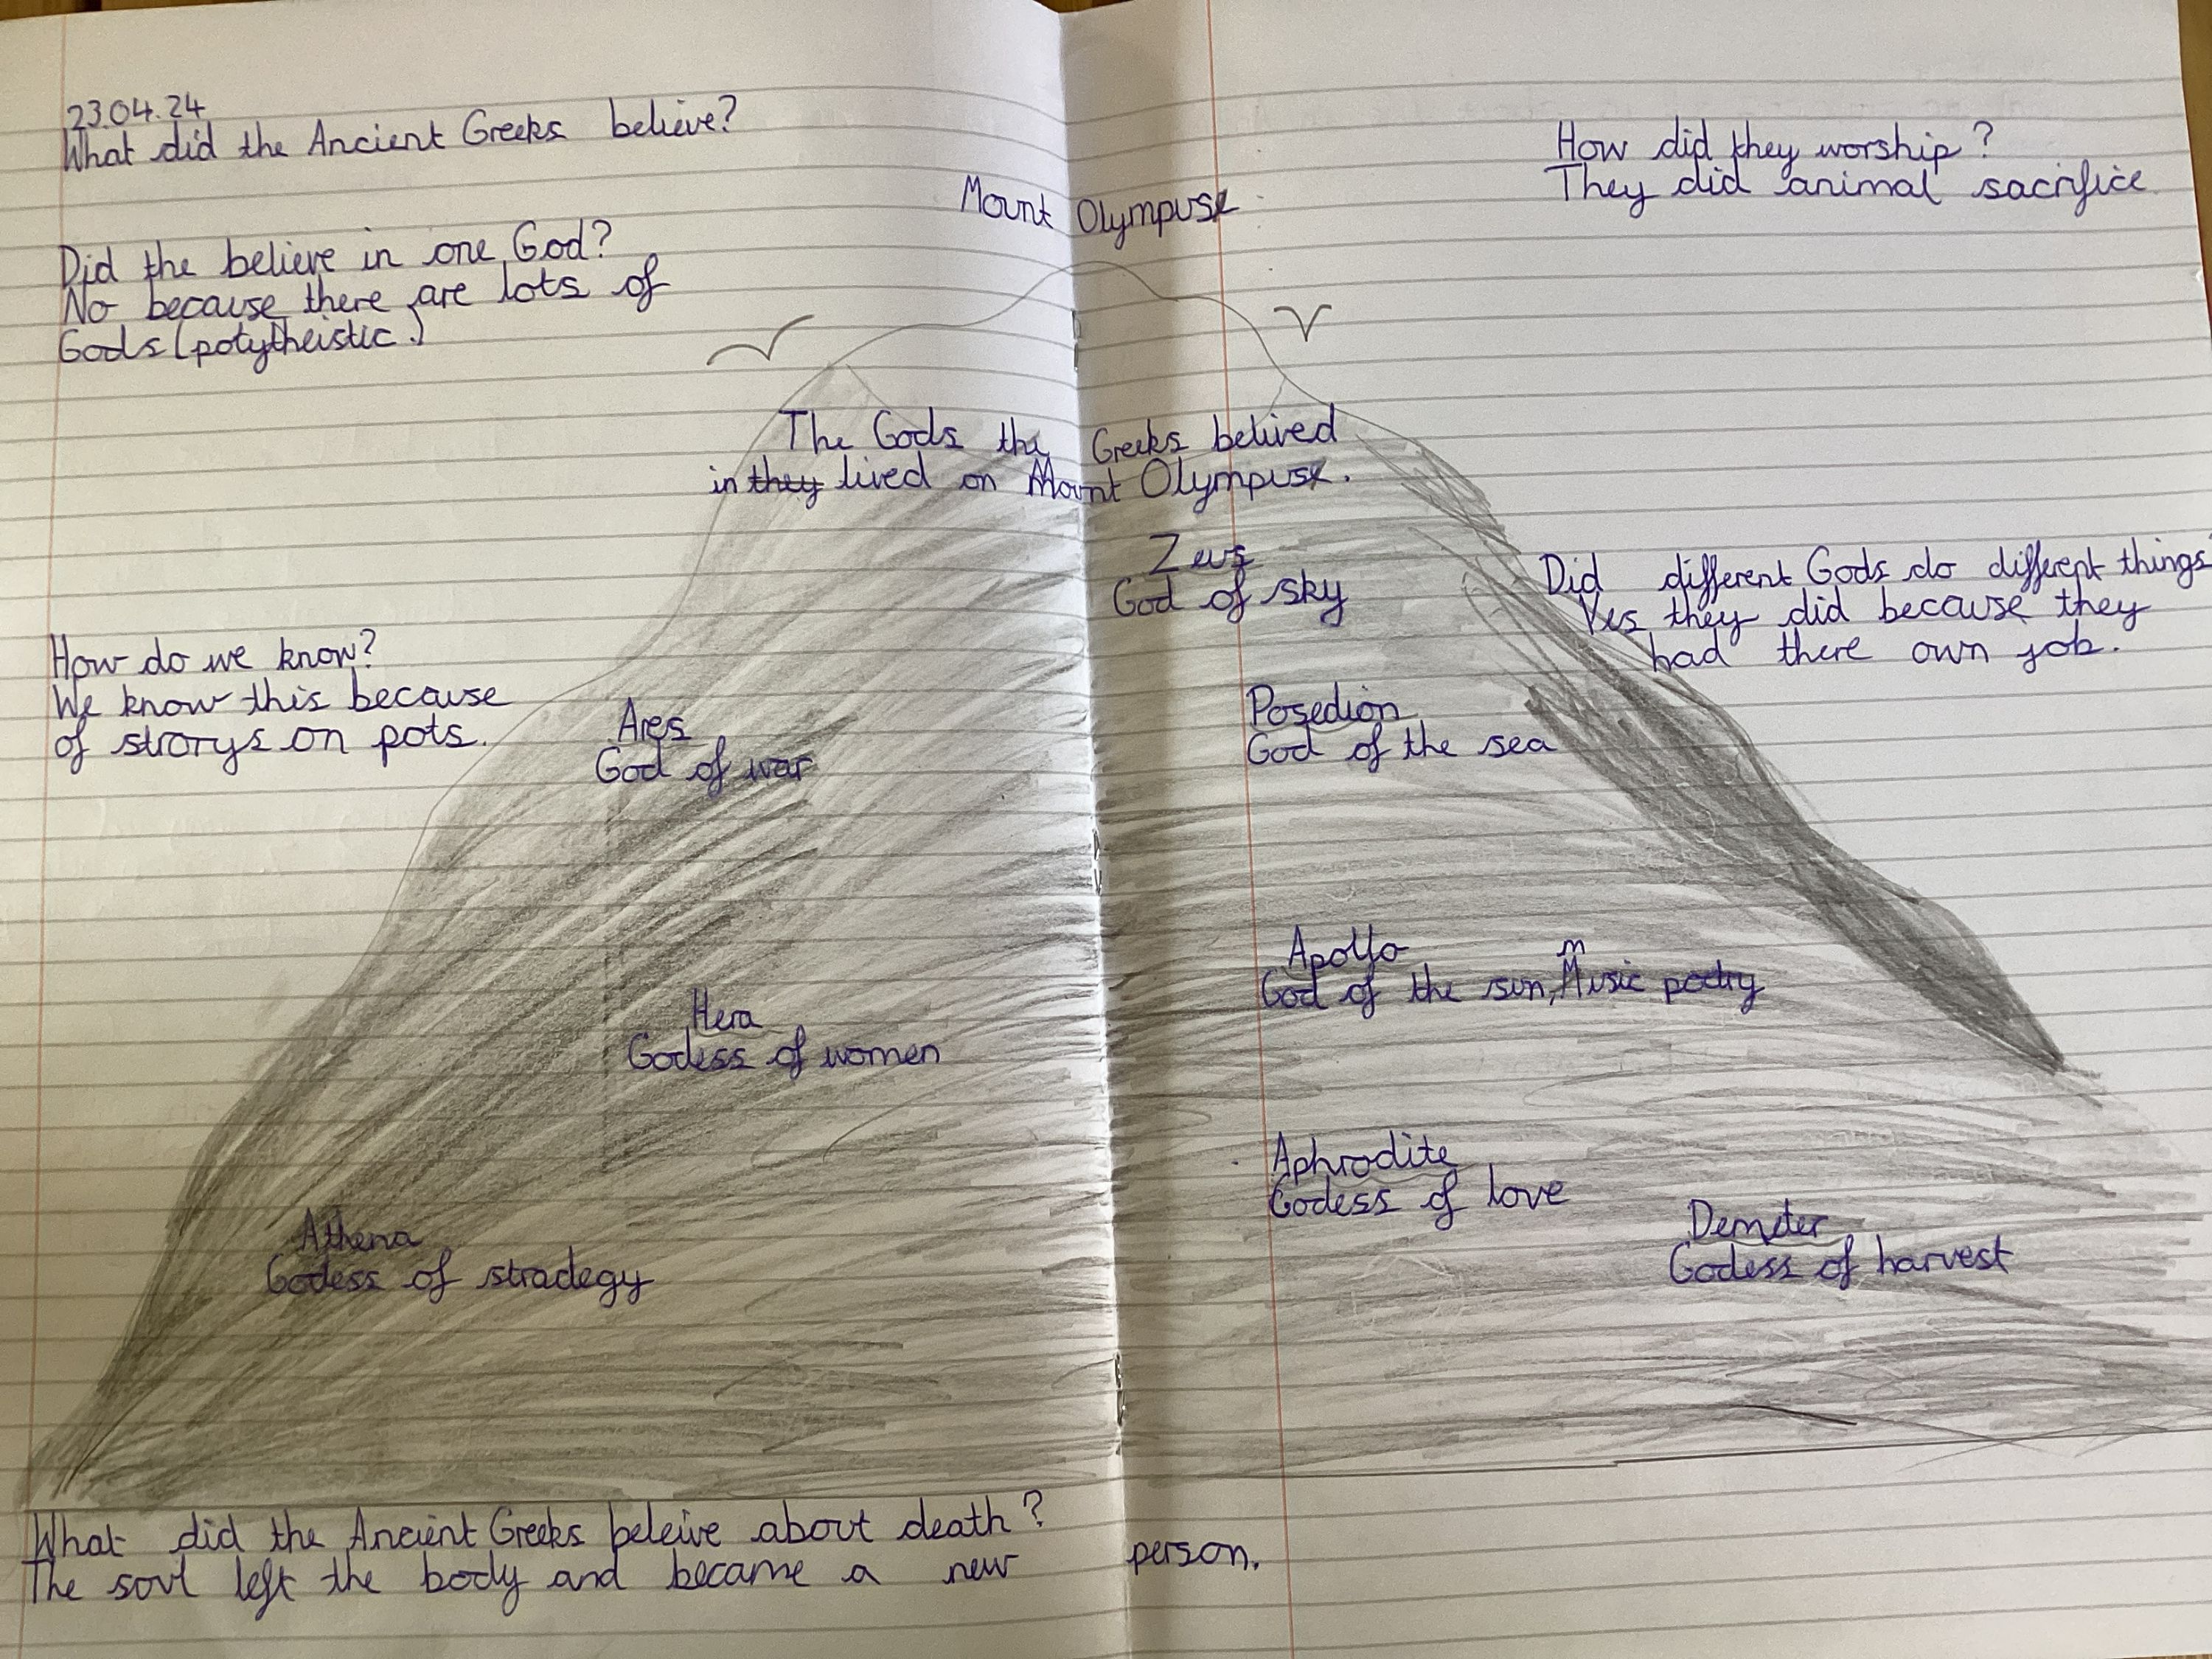 23.04.24
What did the Ancient Greeks believe?
Did the believe in one God?
No because there are lots of
Gods (polytheistic.)
Mount Olympus
How did they worship?
They did animal sacrifice
The Gods the Greeks belived
in they lived on Mount Olympus.
Zeus
God of sky
Did different Gods do different things?
Yes they did because they
had there own job.
How do we know?
We know this because
of strorys on pots.
Ares
God of war
Posedion
God of the sea
Hera
Godess of women
Apollo
God of the sun, music poetry
Athena
Godess of stradegy
Aphrodite
Godess of love
Demeter
Godess of harvest
What did the Ancient Greeks beleive about death?
The soul left the body and became a new person.